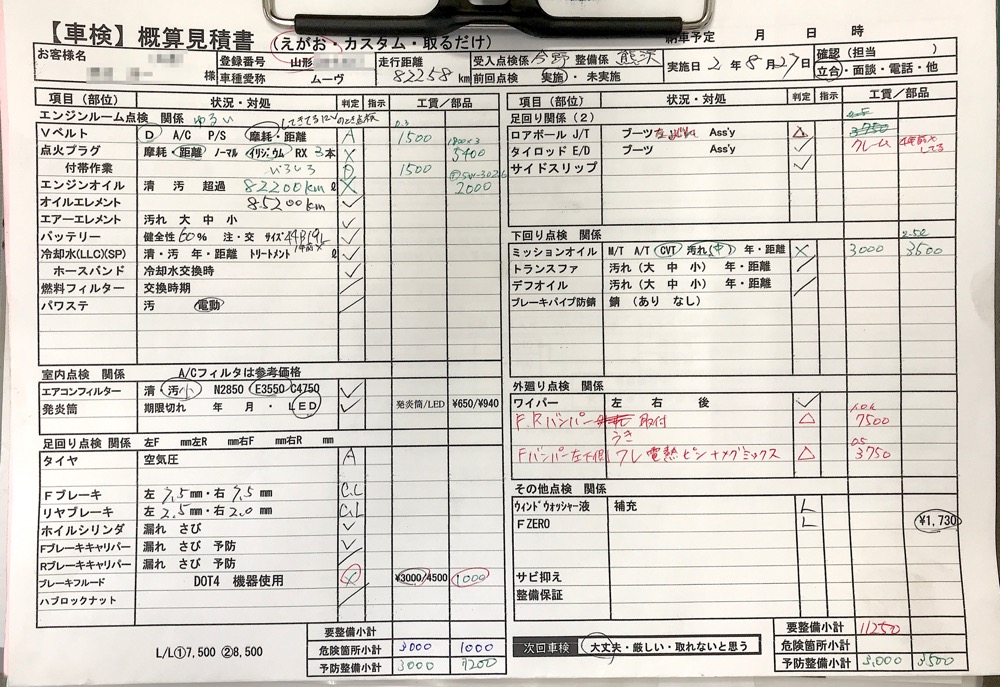 【車検】概算見積書 (えがお・カスタム・取るだけ)
納車予定 月 日 時
お客様名 様
登録番号 山形
車種愛称 ムーヴ
走行距離 82258 km
受入点検係 今野 整備係 熊沢
前回点検 実施・未実施
実施日 2年8月27日
確認(担当 )
立合・面談・電話・他
項目(部位) 状況・対処 判定 指示 工賃/部品
エンジンルーム点検 関係 ゆるい
Vベルト D A/C P/S 摩耗・距離 A 1500
点火プラグ 摩耗・距離・ノーマル イリジウム RX 3本 X 1800×3 5400
付帯作業 1500
エンジンオイル 清 汚 超過 82200km ℓ X 2000
オイルエレメント 85200km
エアーエレメント 汚れ 大 中 小
バッテリー 健全性 60% 注・交 サイズ 44B19L
冷却水(LLC)(SP) 清・汚 年・距離 トリートメント ℓ
ホースバンド 冷却水交換時
燃料フィルター 交換時期
パワステ 汚 電動
室内点検 関係 A/Cフィルタは参考価格
エアコンフィルター 清 汚 小 N2850 E3550 C4750
発炎筒 期限切れ 年 月 ・ LED 発炎筒/LED ¥650/¥940
足回り点検 関係 左F mm左R mm右F mm右R mm
タイヤ 空気圧 A
Fブレーキ 左 7.5mm・右 7.5mm C.L
リヤブレーキ 左 2.5mm・右 2.0mm C.L
ホイルシリンダ 漏れ さび
Fブレーキキャリパー 漏れ さび 予防
Rブレーキキャリパー 漏れ さび 予防
ブレーキフルード DOT4 機器使用 X ¥3000/4500 1000
ハブロックナット
L/L①7,500 ②8,500
要整備小計
危険箇所小計 3000 1000
予防整備小計 3000 7200
項目(部位) 状況・対処 判定 指示 工賃/部品
足回り関係(2)
ロアボール J/T ブーツ Ass'y △ 3750
タイロッド E/D ブーツ Ass'y クレーム
サイドスリップ
下回り点検 関係
ミッションオイル M/T A/T CVT 汚れ(中) 年・距離 X 3000 3500
トランスファ 汚れ(大 中 小) 年・距離
デフオイル 汚れ(大 中 小) 年・距離
ブレーキパイプ防錆 錆(あり なし)
外廻り点検 関係
ワイパー 左 右 後
F.Rバンパー 取付 △ 7500
うき
Fバンパー左下側 ワレ 電熱ピン+メグミックス △ 0.5 3750
その他点検 関係
ウィンドウォッシャー液 補充 L
F ZERO L ¥1,730
サビ抑え
整備保証
次回車検 大丈夫・厳しい・取れないと思う
要整備小計 11250
危険箇所小計
予防整備小計 3,000 3500